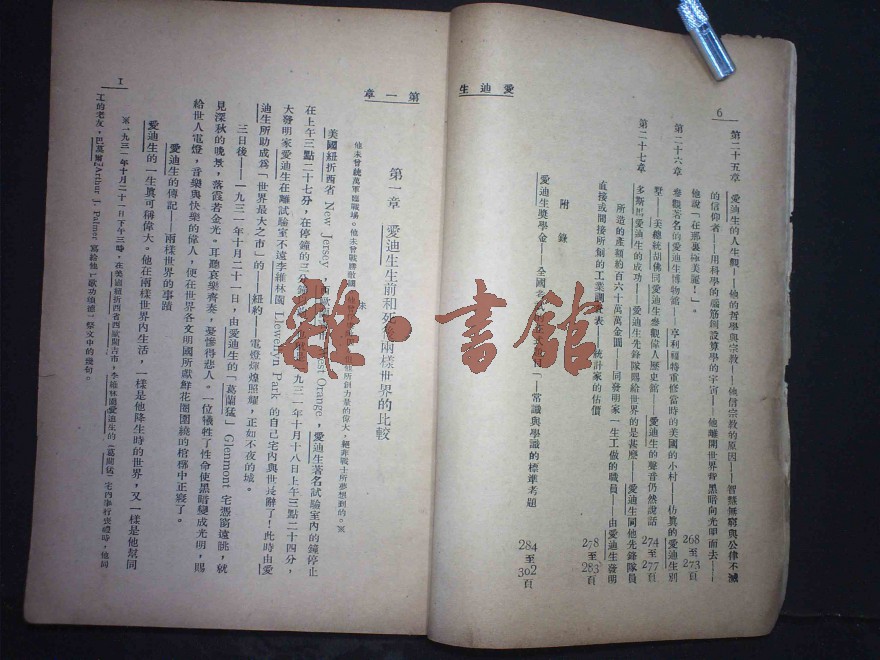 愛迪生
6
第二十五章 愛迪生的人生觀——他的哲學與宗教——他信宗教的原因——智慧無窮與公律不滅
的信仰者——用科學的腦筋釧設算學的宇宙——他離開世界背黑暗向光明而去——
他說「在那裏極美麗!」。 268至273頁
第二十六章 參觀著名的愛迪生博物館——亨利福特重修當時的美國的小村——仿眞的愛迪生別
墅——美總統胡佛同愛迪生參觀偉人歷史館——愛迪生的聲音仍然說話 274至277頁
第二十七章 多斯馬愛迪生的成功——愛迪生先鋒隊賜給世界的是甚麼——愛迪生同他先鋒隊員
所造的產額約百六十萬萬金圓——同發明家一生工做的職員——由愛迪生發明
直接或間接所創的工業調查表——統計家的估價 278至283頁
附錄
愛迪生獎學金——全國 ——常識與學識的標準考題 284至302頁
第一章
1
第一章 愛迪生生前和死後兩樣世界的比較
他未曾統萬軍臨戰場。他未曾戰勝敵國 所創力量的偉大,絕非戰士所夢想到的。
美國紐折西省 New Jersey, Orange,愛迪生著名試驗室內的鐘停止
在上午三點二十七分,在停鐘的三分鐘 九三一年十月十八日上午三點二十四分,
大發明家愛迪生在離試驗室不遠李維林園 Llewellyn Park 的自己宅內與世長辭了!此時由愛
迪生所助成爲「世界最大之市」的——紐約——電燈輝煌照耀,正如不夜的城。
三日後——一九三一年十月二十一日,由愛迪生的「葛蘭猛」Glenmont 宅憑窗遠眺,就
見深秋的晚景,落霞若金光。耳聽哀樂齊奏,憂慘得悲人。一位犧牲了性命使黑暗變成光明,賜
給世人電燈,音樂與快樂的偉人,便在世界各文明國所獻鮮花圈圍繞的棺槨中正寢了。
愛迪生的傳記——兩樣世界的事蹟
愛迪生的一生眞可稱偉大。他在兩樣世界內生活,一樣是他降生時的世界,又一樣是他幫同
一九三一年十月二十一日下午三時,在美國紐折西省西歐蘭吉市,李維林園愛迪生的「葛蘭猛」宅內舉行喪禮時,他同
工的老友,巴莫爾 Arthur J. Palmer 寫給他「歌功頌德」祭文中的幾句。
雜·書館